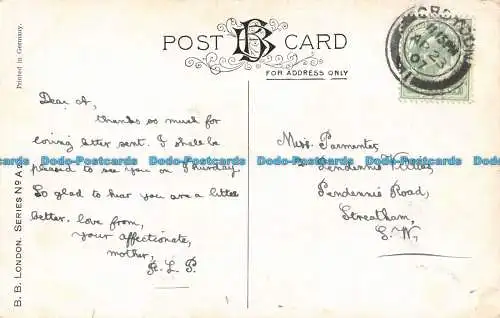 POST CARD
FOR ADDRESS ONLY
Printed in Germany.
B. B. LONDON. SERIES No A 2
Dear A,
thanks so much for
loving letter sent. I shall be
pleased to see you on Thursday
So glad to hear you are a little
better. love from,
your affectionate,
mother,
A. L. P.
Miss Parmenter
Pendennis Villas
Pendennis Road,
Streatham,
S. W,
Dodo-Postcards Dodo-Postcards Dodo-Postcards Dodo-Postcards